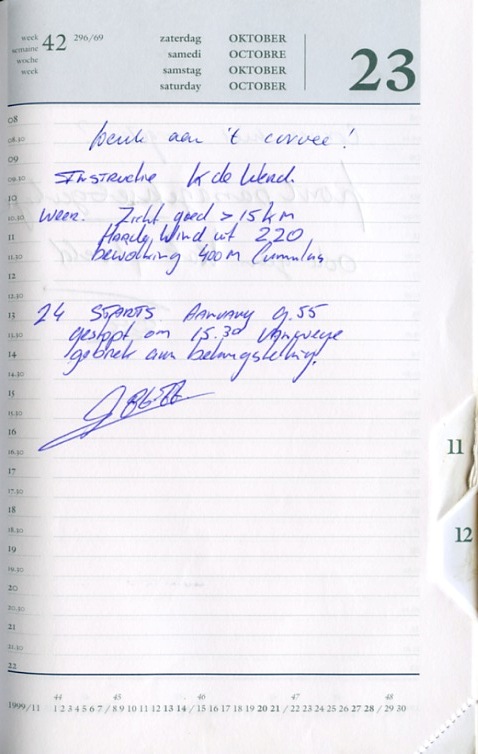 week
semaine
woche
week
42 296/69
zaterdag OKTOBER
samedi OCTOBRE
samstag OKTOBER
saturday OCTOBER
23
08
08.30
09
09.30
10
10.30
11
11.30
12
12.30
13
13.30
14
14.30
15
15.30
16
16.30
17
17.30
18
18.30
19
19.30
20
20.30
21
21.30
22
Denk aan 't corvee!
Instructie K de
Weer. Zicht goed > 15 km
Harde Wind uit 220
bewolking 400 m Cumulus
24 STARTS. Aanvang 9.55
gestopt om 15.30 vanwege
gebrek aan belangstelling.
11
12
44 45 46 47 48
1999/11 1 2 3 4 5 6 7 / 8 9 10 11 12 13 14 / 15 16 17 18 19 20 21 / 22 23 24 25 26 27 28 / 29 30